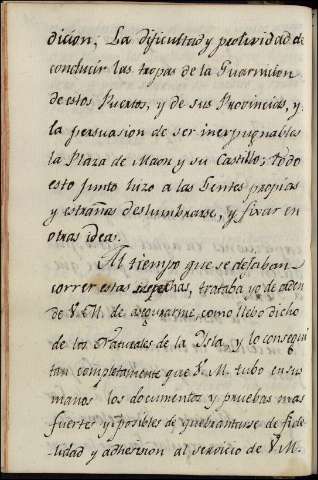 dicion, La dificultad y prolixidad de
conducir las tropas de la Guarnicion
de estos Puertos, y de sus Provincias, y
la persuasion de ser inexpugnables
la Plaza de Maon y su Castillo; todo
esto junto hizo a las Gentes propias
y estrañas deslumbrarse, y fixar en
otras ideas.
Al tiempo que se dejaban
correr estas sospechas, trataba yo de orden
de V. M. de asegurarme, como llebo dicho
de los Naturales de la Isla, y lo consegui
tan completamente que V. M. tubo en sus
manos los documentos y pruebas mas
fuertes y posibles de quebrantarse de fide
lidad y adhesion al servicio de V. M.